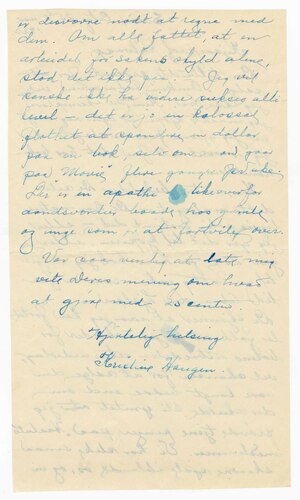 er desværre nødt at regne med
dem. Om alle fattet, at en
arbeidet for sakens skyld alene,
stod det ikke paa. Jeg vil
kanske ikke ha videre sukses alli
level — det er jo en kolossal
flothet at spandere en dollar
paa en bok, selv om en gaa
paa "Movie" flere ganger per uke.
Der er en apathi likeoverfor
aandsverdier baade hos gamle
og unge som er at fortvile over.
Vær saa venlig at late mig
vite Deres mening om hvad
at gjøre med 25 centen.
Hjertelig hilsing
Kristine Haugen.